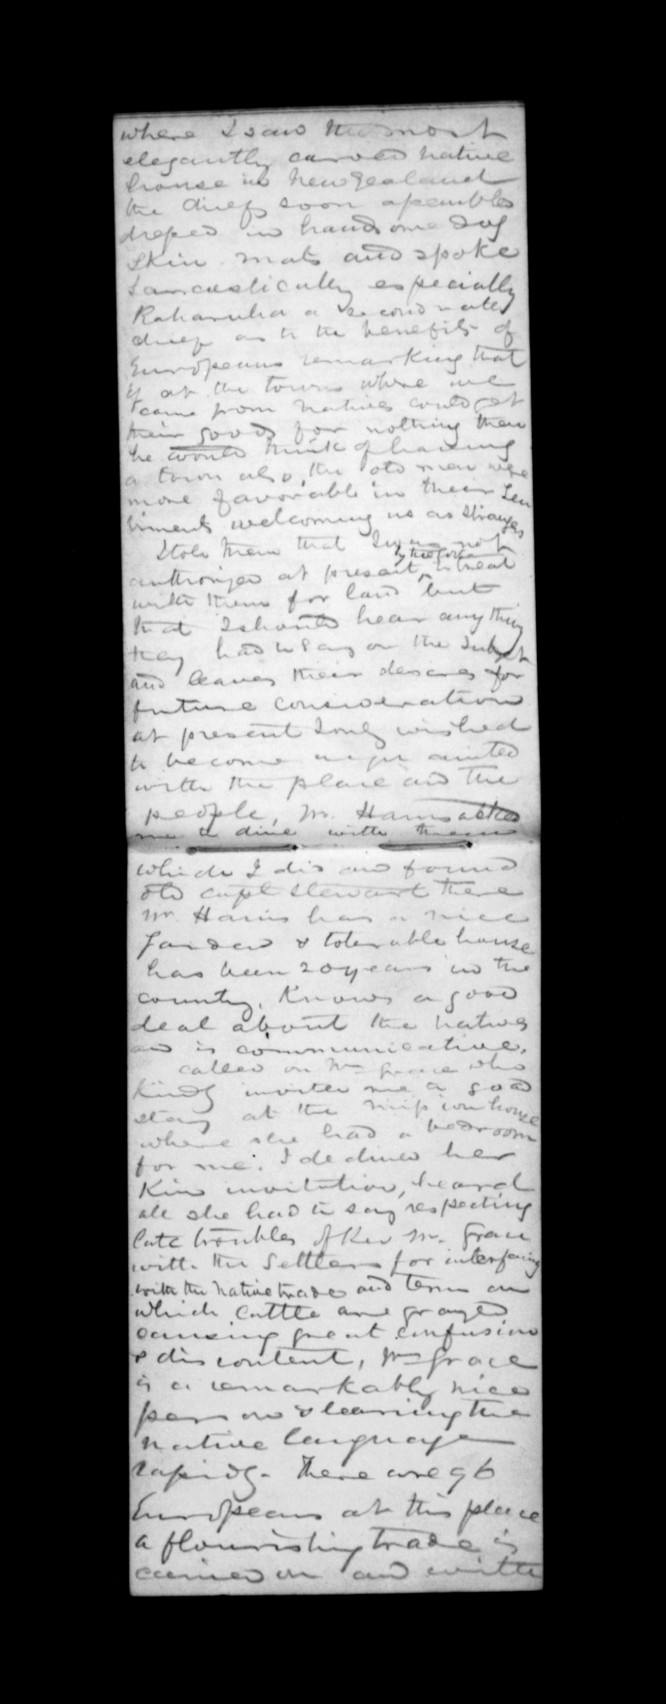 where I saw the most
elegantly carved native
house in New Zealand
the chiefs soon assembled
dressed in handsome dog
skin mats and spoke
sarcastically especially
Raharuhi a second rate
chief as to the benefits of
Europeans remarking that
if at the towns where we
came from natives could get
their goods for nothing then
he would think of having
a town also, the old men were
more favorable in their Sen
timents welcoming us as strangers
I told them that I was not
authorized at present, by the Govr to treat
with them for land but
that I should hear any thing
they had to say on the subject
and leave their desires for
future consideration
at present I only wished
to become acquainted
with the place and the
people, Mr. Harris asked
me to dine with them
which I did and found
old capt Stewart there
Mr. Harris has a nice
garden & tolerable house
has been 20 years in the
country, Knows a good
deal about the natives
and is communicative.
called on Mrs Grace who
kindly invited me a good
stay at the mission house
where she had a bedroom
for me. I declined her
kind invitation, heard
all she had to say respecting
late troubles of Rev Mr. Grace
with the Settlers for interfering
with the native trade and terms on
which cattle are grazed
causing great confusion
& discontent, Mrs Grace
is a remarkably nice
person & learning the
native language
rapidly. There are 96
Europeans at this place
a flourishing trade is
carried on and with